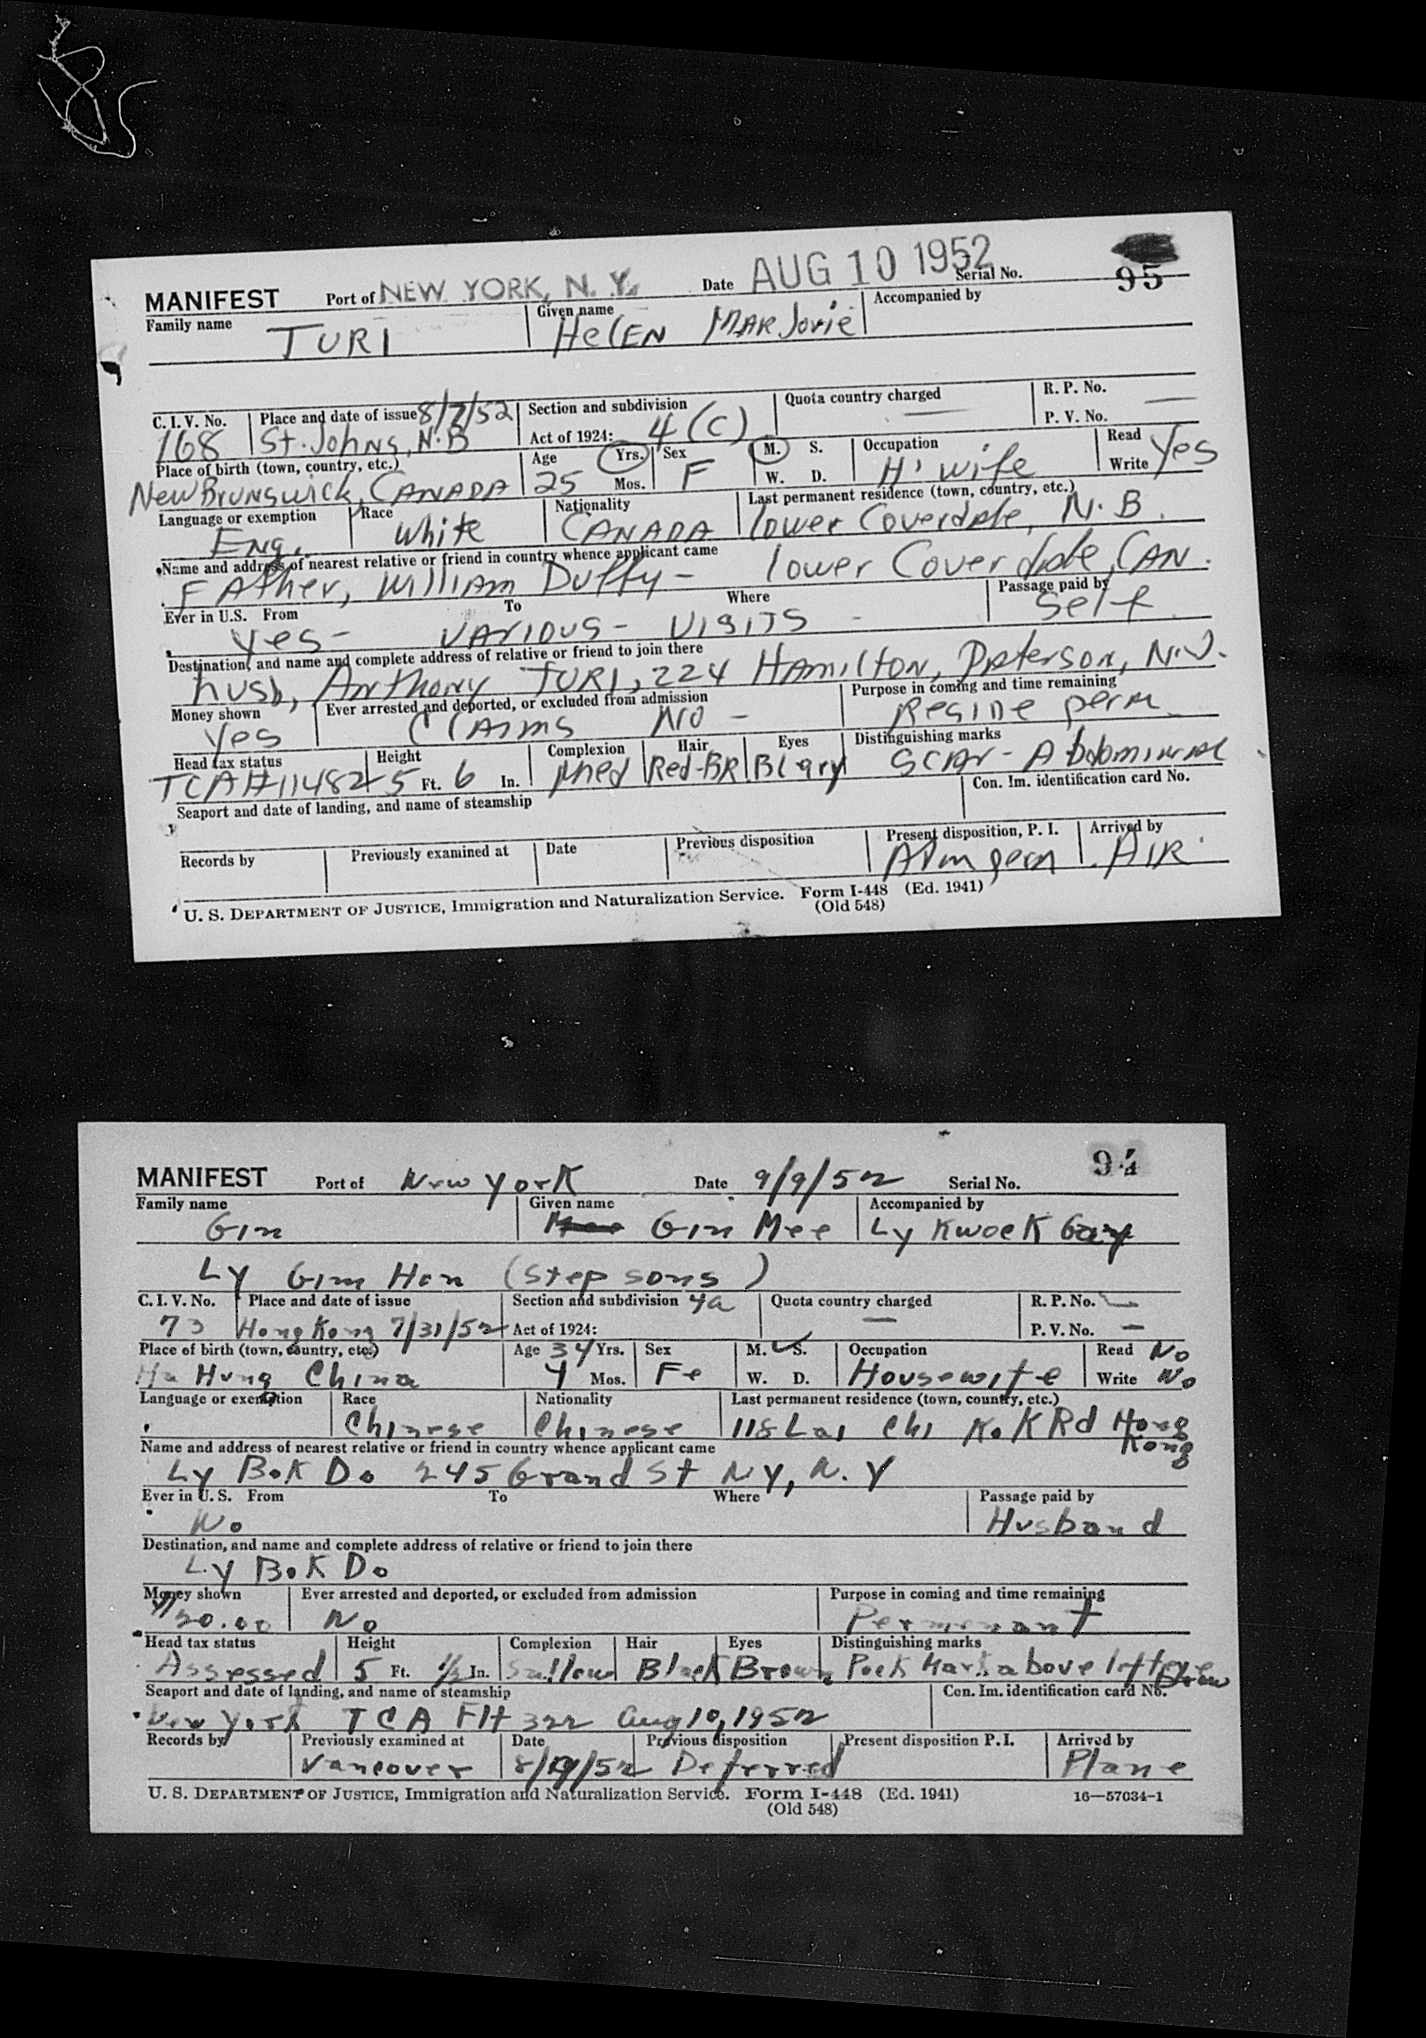 MANIFEST Port of NEW YORK, N. Y. Date AUG 10 1952 Serial No. 95
Family name Given name Accompanied by
TURI HelEN MARJorie
C. I. V. No. Place and date of issue 8/7/52 Section and subdivision Quota country charged — R. P. No. —
168 St. Johns, N.B Act of 1924: 4 (C) P. V. No.
Place of birth (town, country, etc.) Age Yrs. Sex M. S. Occupation Read Yes
New BRUNSWICK, CANADA 25 Mos. F W. D. H' wife Write
Language or exemption Race Nationality Last permanent residence (town, country, etc.)
ENg. White CANADA lower Coverdale, N. B.
Name and address of nearest relative or friend in country whence applicant came
FAther, William Duffy - lower Coverdale, CAN.
Ever in U.S. From To Where Passage paid by
Yes - VARIOUS - VISITS - Self
Destination, and name and complete address of relative or friend to join there
husb, Anthony TURI, 224 HAMILTON, Paterson, N.J.
Money shown Ever arrested and deported, or excluded from admission Purpose in coming and time remaining
Yes CLAIMS NO - Reside perm.
Head tax status Height Complexion Hair Eyes Distinguishing marks
TCA#11482 5 Ft. 6 In. Med Red-BR Bl gry SCAR - Abdominal
Seaport and date of landing, and name of steamship Con. Im. identification card No.
Records by Previously examined at Date Previous disposition Present disposition, P. I. Arrived by
Adm perm AIR
U. S. DEPARTMENT OF JUSTICE, Immigration and Naturalization Service. Form I-448 (Ed. 1941)
(Old 548)
MANIFEST Port of New York Date 9/9/52 Serial No. 94
Family name Given name Accompanied by
Gin Gin Mee Ly Kwock Gay
Ly Gim Hon (Step sons)
C. I. V. No. Place and date of issue Section and subdivision 4a Quota country charged R. P. No. —
73 Hong Kong 7/31/52 Act of 1924: — P. V. No. —
Place of birth (town, country, etc.) Age 34 Yrs. Sex M. S. Occupation Read No
Ha Hung China 4 Mos. Fe W. D. Housewife Write No
Language or exemption Race Nationality Last permanent residence (town, country, etc.)
Chinese Chinese 118 Lai Chi Kok Rd Hong
Name and address of nearest relative or friend in country whence applicant came Kong
Ly Bok Do 245 Grand St NY, N. Y
Ever in U. S. From To Where Passage paid by
No Husband
Destination, and name and complete address of relative or friend to join there
Ly Bok Do
Money shown Ever arrested and deported, or excluded from admission Purpose in coming and time remaining
20.00 No Permenant
Head tax status Height Complexion Hair Eyes Distinguishing marks
Assessed 5 Ft. 1/2 In. Sallow Black Brown Pock Mark above left eye brow
Seaport and date of landing, and name of steamship Con. Im. identification card No.
New York TCA Flt 322 Aug 10, 1952
Records by Previously examined at Date Previous disposition Present disposition P. I. Arrived by
Vancover Deferred Plane
U. S. DEPARTMENT OF JUSTICE, Immigration and Naturalization Service. Form I-448 (Ed. 1941) 16—57034-1
(Old 548)